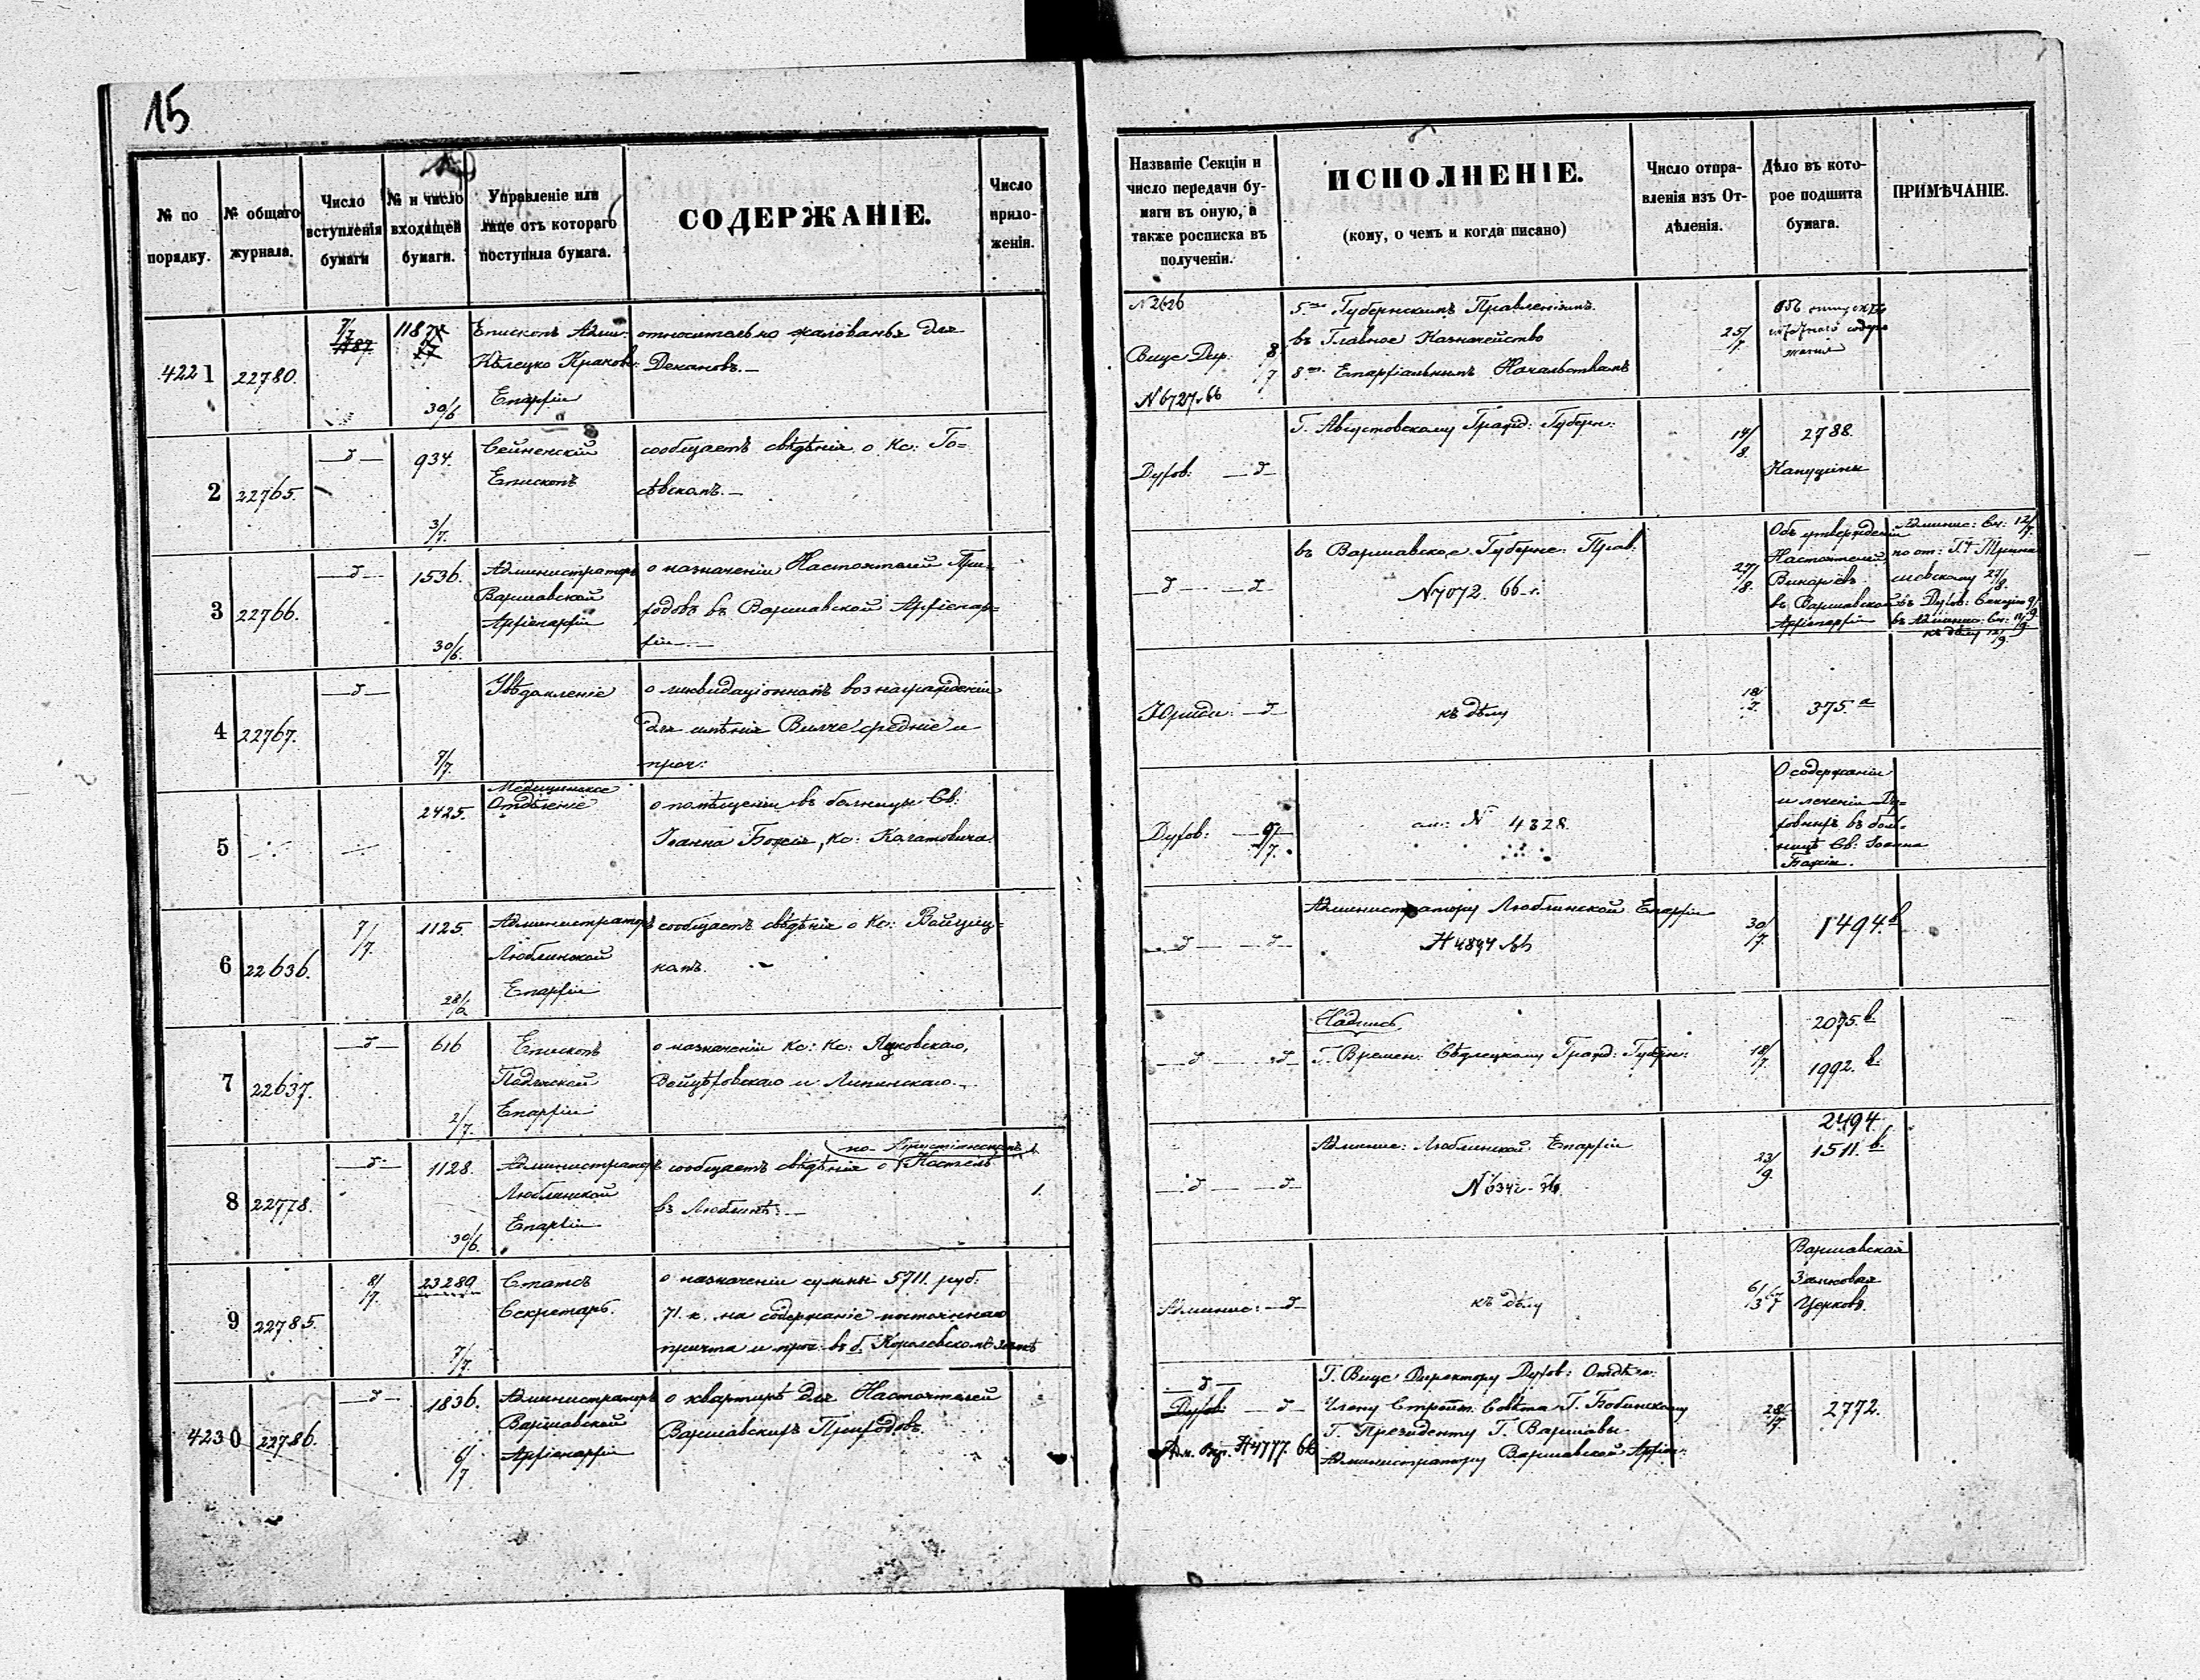 15
№ по порядку.
№ общаго журнала.
Число вступленія бумаги
№ и число входящей бумаги.
Управленіе или лице отъ котораго поступила бумага.
СОДЕРЖАНІЕ.
Число приложеніи.
Названіе Секціи и число передачи бумаги въ оную, а также росписка въ полученіи.
ИСПОЛНЕНІЕ.
(кому, о чемъ и когда писано)
Число отправленія изъ Отдѣленія.
Дѣло въ которое подшита бумага.
ПРИМѢЧАНІЕ.
4221
22780.
7/7
30/6
Епископъ Админ:
Кѣлецко Краков:
Епархіи
относительно жалованья для
Декановъ.—
N 2626
Вице Дир. 8/7
N 6727. 66
5ти Губернскимъ Правленіямъ
въ Главное Казначейство
8ми Епархіальнымъ Начальствамъ
25/7.
2
22765.
—д—
934.
3/7.
Сейненскій
Епископъ
сообщаетъ свѣдѣнія о Кс: Го=
сѣвскомъ.—
Духов: —д—
Г. Августовскому Гражд: Губерн:
14/8.
2788.
Капуцины
3
22766.
—д—
1536.
30/6.
Администраторъ
Варшавской
Архіепархіи
о назначеніи Настоятелей При=
ходовъ въ Варшавской Архіепар=
хіи.—
—д— —д—
въ Варшавское Губерн: Прав:
N 7072. 66 г.
27/8.
Объ утвержденіи
Настоятелей
Викаріевъ
въ Варшавской
Архіепархіи
Админис: Сл: 12/7.
въ Духов: Секцію 9/9
въ Админис: Сл: 12/9.
къ дѣлу 12/9
4
22767.
—д—
7/7.
Увѣдомленіе
о ликвидаціонномъ вознагражденіи
для имѣнія Вилче средніе и
проч:
Юриди: —д—
къ дѣлу
18/7.
375.а
5
2425.
Медицинское
Отдѣленіе
о помѣщеніи въ больницы Св:
Іоанна Божія, Кс: Кагатовича
Духов: 9/7.
см: N 4328.
О содержаніи
и леченіи Ду=
ховныхъ въ боль=
ницѣ Св: Іоанна
Божія.
6
22636.
7/7.
1125.
Администраторъ
Люблинской
Епархіи
сообщаетъ свѣдѣнія о Кс: Войциц=
комъ.
—д— —д—
Администратору Люблинской Епархіи
N 4894
30/7.
1494.в
7
22637.
—д—
616
2/7.
Епископъ
Подляской
Епархіи
о назначеніи Кс: Кс: Яцковскаго,
Войцѣховскаго и Липинскаго.—
—д— —д—
Надпись
Г. Времен: Сѣдлецкому Гражд: Губерн:
18/7.
2075.в.
1992. в.
8
22778.
—д—
1128.
30/6.
Администраторъ
Люблинской
Епархіи
сообщаетъ свѣдѣнія о
Костелѣ
въ Люблинѣ:—
1.
—д— —д—
Админис: Люблинской Епархіи
23/9.
2494.
1511.в.
9
22785.
8/7.
23289
7/7.
Статсъ
Секретарь.
о назначеніи суммы 5711. руб:
71. к. на содержаніе постояннаго
причта и проч. въ б. Королевскомъ Замкѣ
Админис: —д—
къ дѣлу
Варшавская
Замковая
Церковь.
4230
22786.
—д—
1836.
6/7.
Администраторъ
Варшавской
Архіепархіи
о квартирѣ для Настоятелей
Варшавскихъ Приходовъ.
—д—
Духов: —д—
N 4777. 66
Г. Вице Директору Духов: Отдѣл:
Члену Строит. Совѣта Г. Бобинскому
Г. Президенту Г. Варшавы
Администратору Варшавской Архіеп:
28/7.
2772.